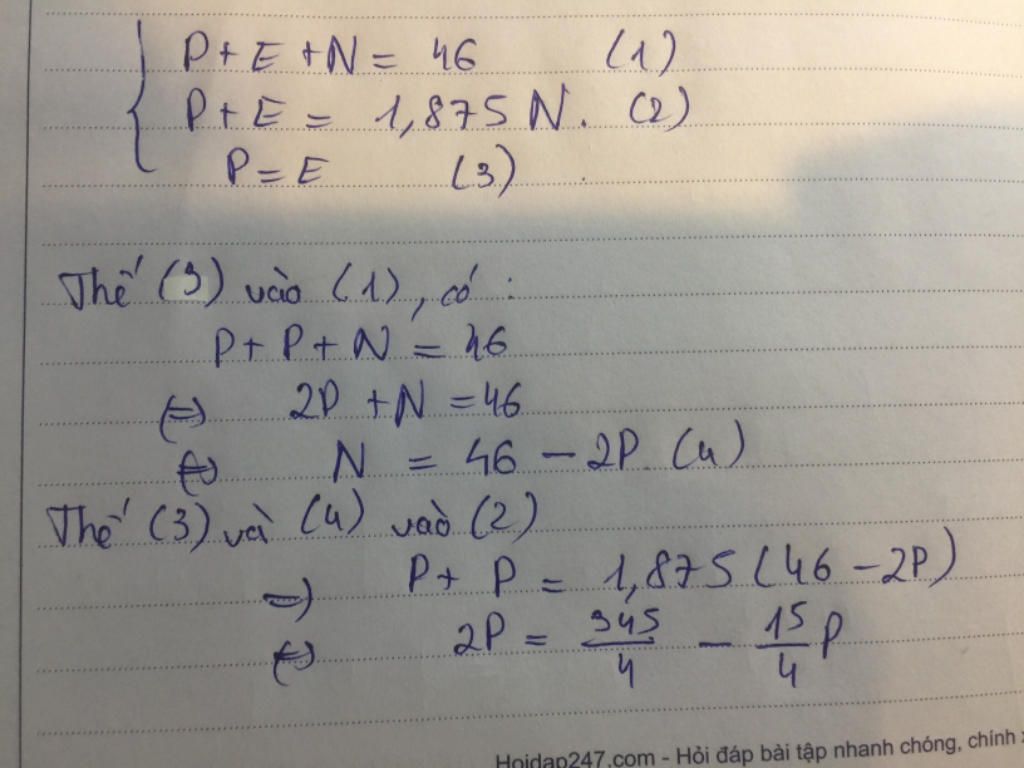 P + E + N = 46 (1)
P + E = 1,875 N. (2)
P = E (3)
Thế (3) vào (1), có :
P + P + N = 46
(=) 2P + N = 46
(=) N = 46 - 2P. (4)
Thế (3) và (4) vào (2)
=) P + P = 1,875 (46 - 2P)
(=) 2P = 345/4 - 15/4 P
Hoidap247.com - Hỏi đáp bài tập nhanh chóng, chính